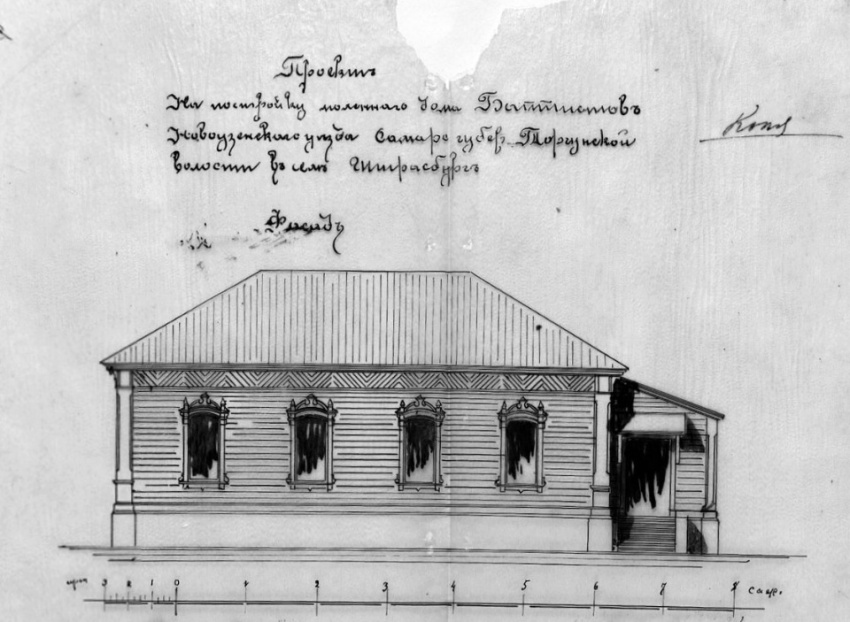 Проектъ
На постройку моленнаго дома Баптистовъ
Новоузенскаго уѣзда Самарс губер. Торгунской
волости въ селѣ Штрасбургъ
Копия
Фасадъ
арш 3 2 1 0 1 2 3 4 5 6 7 8 саж.